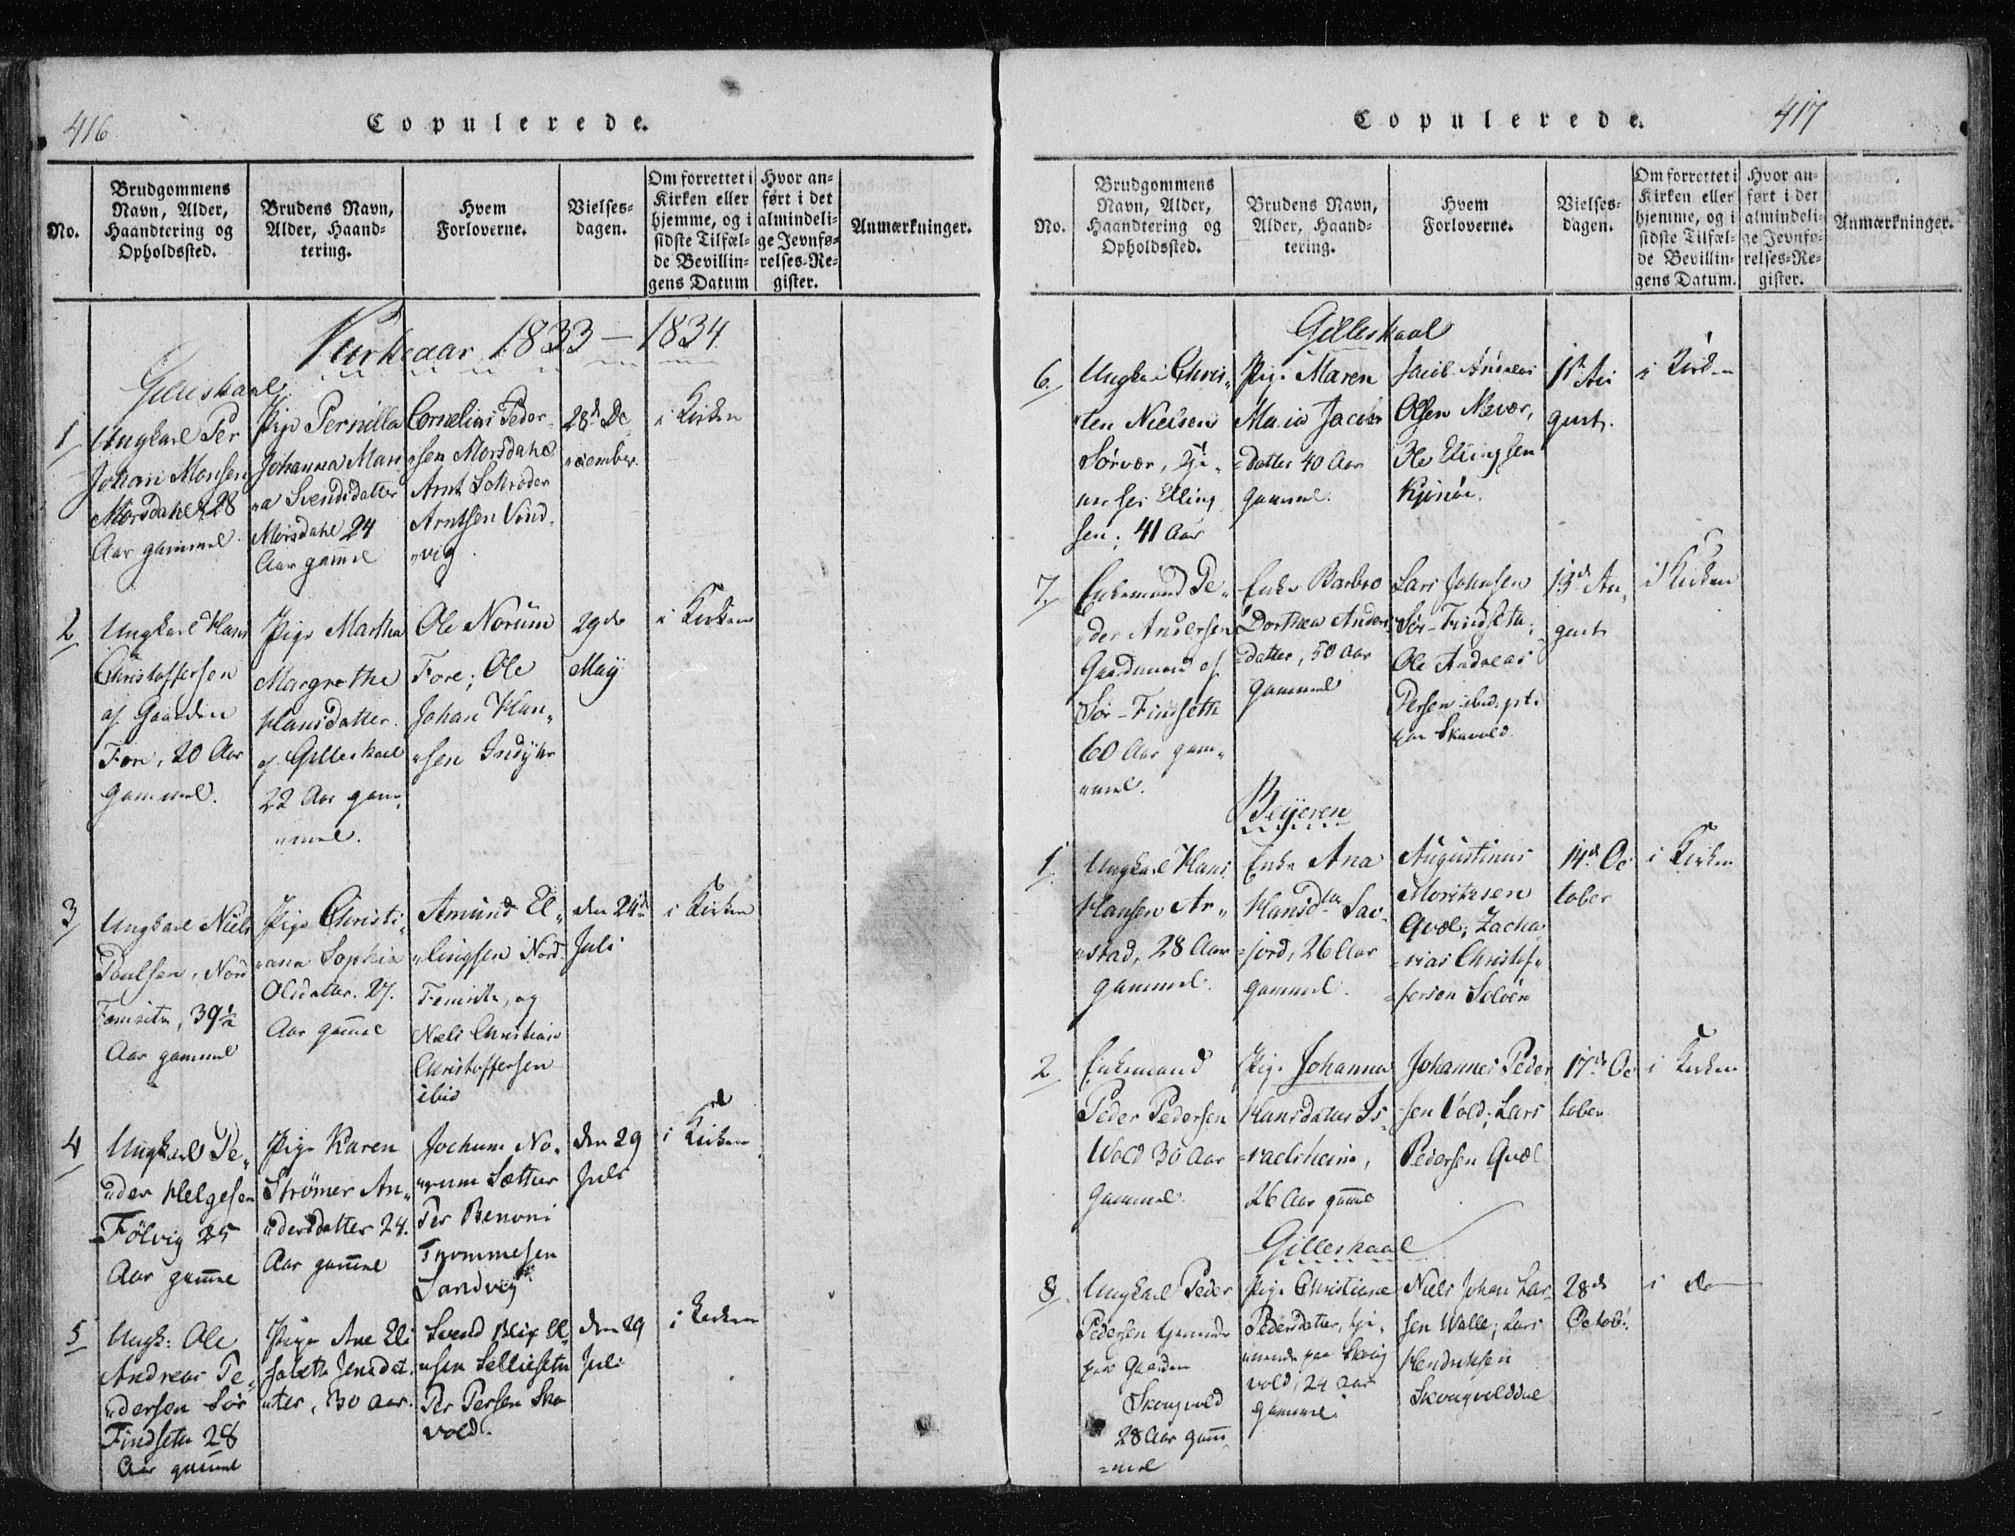 416
Copulerede.
No.
Brudgommens
Navn, Alder,
Haandtering og
Opholdssted.
Brudens Navn,
Alder, Haand-
tering.
Hvem
Forloverne.
Vielses-
dagen.
Om forrettet i
Kirken eller
hjemme, og i
sidste Tilfæl-
de Bevillin-
gens Datum
Hvor an-
ført i det
almindeli-
ge Jevnfø-
relses-Re-
gister.
Anmærkninger.
Kirkeaar 1833 — 1834
Gilleskaal
1
Ungkarl Per
Johan Monsen
Morsdahl 28
Aar gammel.
Pige Pernilla
Johanna Mari
"a Svendsdatter
Morsdahl 24
Aar gam̅el
Cornelius Peder-
"sen Morsdahl
Arnt Schrøder
Arntsen Vind-
"vig.
28de De
"cember.
i Kirken
2
Ungkarl Hans
Christoffersen
af Gaarden
Fore, 20 Aar
gammel.
Pige Martha
Margrethe
Hansdatter
af Gilleskaal
22 Aar gam-
"mel.
Ole Norum
Fore; Ole
Johan Han-
"sen Indyhr
29de
May
i Kirken
3
Ungkarl Niels
Poulsen, Nord
, 39½
Aar gammel
Pige Christi-
"ana Sophia
Olsdatter. 27.
Aar gam̅el
Amund El-
"lingsen Nord-
, og
Niels Christian
Christoffersen
ibid
den 24de
Juli
i Kirken
4
Ungkarl Pe-
"der Helgesen
Følvig 25
Aar gam̅el
Pige Karen
Strømer An-
"dersdatter 24.
Aar gam̅el
Jochum No-
"rum Sætther
Per Benoni
Trommesen
Sandvig
den 29
Juli
i Kirken
5
Ungk: Ole
Andreas Pe-
"dersen Sør
Findseth 28
Aar gammel
Pige Ane Eli
sabeth Jensdat-
"ter, 30 Aar.
Svend Blix El-
"sen Selliesetn
Per Persen Ska
vold.
den 29
Juli
i Kirken
417
Copulerede.
No.
Brudgommens
Navn, Alder,
Haandtering og
Opholdssted.
Brudens Navn,
Alder, Haand-
tering.
Hvem
Forloverne.
Vielses-
dagen.
Om forrettet i
Kirken eller
hjemme, og i
sidste Tilfæl-
de Bevillin-
gens Datum.
Hvor an-
ført i det
almindeli-
ge Jevnfø-
relses-Re-
gister.
Anmærkninger.
Gilleskaal
6.
Ungkarl Chris-
"ten Nielsen
Sørvær, tje-
Elling
sen; 41 Aar
Pige Maren
Maria Jacobs
=datter 40 Aar
gammel.
Jacob Andreas
Olsen
Ole Ellingsen
1ste Au
gust.
i Kirken
7.
Enkemand Pe-
"der Andersen
Gaardmand af
Sør-Findseth
60 Aar gam-
"mel.
Enke Barbro
Dorthea Anders
=datter, 50 Aar
gammel
Lars Johnsen
Sør-Findseth;
Ole Andreas
Persen ibid. pt.
paa Skavold.
13de Au-
gust
i Kirken
Beyeren
1
Ungkarl Hans
Hansen Ar-
"stad, 28 Aar
gammel.
Enke Ana
Hansdtr Sav-
=jord, 26 Aar
gammel.
Augustinus
Moritssen
Qvæl; Zacha
=rias Christof-
=fersen Seløen
14de Oc
tober
i Kirken
2
Enkemand
Peder Pedersen
Wold 30 Aar
gammel.
Pige Johanna
Hansdatter Is-
=raelsheim,
26 Aar gam̅el
Johannes Peder
sen Vold; Lars
Pedersen Qvæl
17de Oc
tober
i Kirken
Gilleskaal
8
Ungkarl Peder
Pedersen
paa Gaarden
Skougvold
28 Aar gam̅
=mel
Pige Christiane
Pedersdatter, tje-
"nende paa Skoug
vold, 24 Aar
gammel.
Niels Johan Lar-
sen Walle; Lars
Hendriksen
Skougvolddal
28de
Octob:
i do